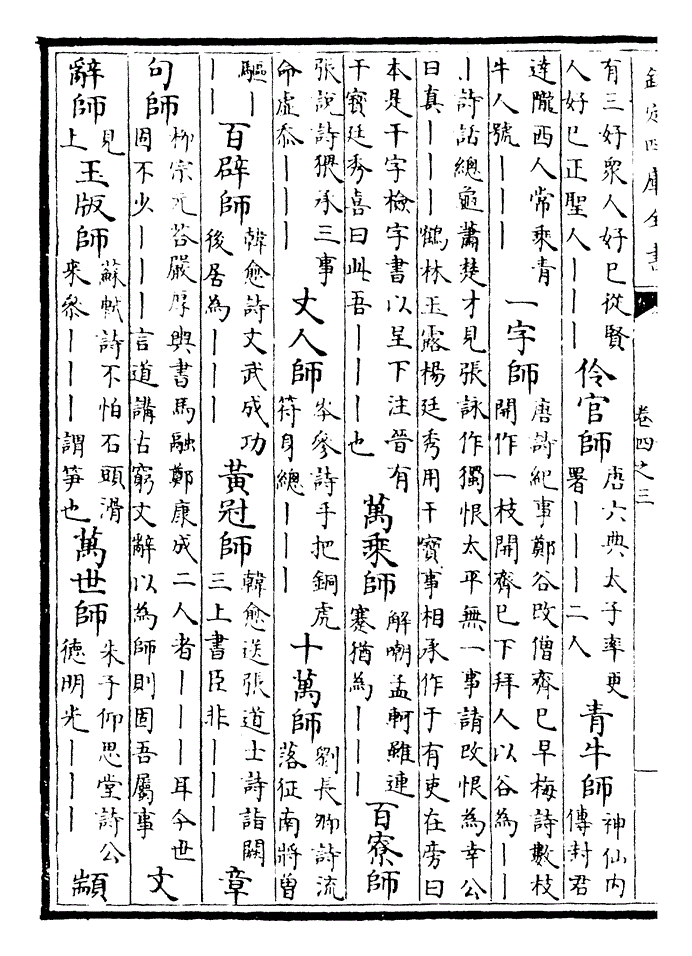 欽定四庫全書 卷四之三
有三好衆人好已從賢
人好已正聖人丨丨丨
伶官師
唐六典太子率更
署丨丨丨二人
青牛師
神仙内
傳封君
達隴西人常乘青
牛人號丨丨丨
一字師
唐詩紀事鄭谷改僧齊巳早梅詩數枝
開作一枝開齊巳下拜人以谷為丨丨
丨詩話總龜蕭楚才見張詠作獨恨太平無一事請改恨為幸公
曰真丨丨丨鶴林玉露楊廷秀用干寳事相承作于有吏在旁曰
本是干字檢字書以呈下注晉有
干寳廷秀喜曰此吾丨丨丨也
萬乘師
解嘲孟軻雖連
蹇猶為丨丨丨
百寮師
張說詩猥承三事
命虛忝丨丨丨
丈人師
岑參詩手把銅虎
符身總丨丨丨
十萬師
劉長卿詩流
落征南將曽
驅丨
丨丨
百辟師
韓愈詩文武成功
後居為丨丨丨
黃冠師
韓愈送張道士詩詣闕
三上書臣非丨丨丨
章
句師
柳宗元荅嚴厚輿書馬融鄭康成二人者丨丨丨耳今世
固不少丨丨丨言道講古窮文辭以為師則固吾屬事
文
辭師
見
上
玉版師
蘇軾詩不怕石頭滑
来參丨丨丨謂筍也
萬世師
朱子仰思堂詩公
德明光丨丨丨
顓